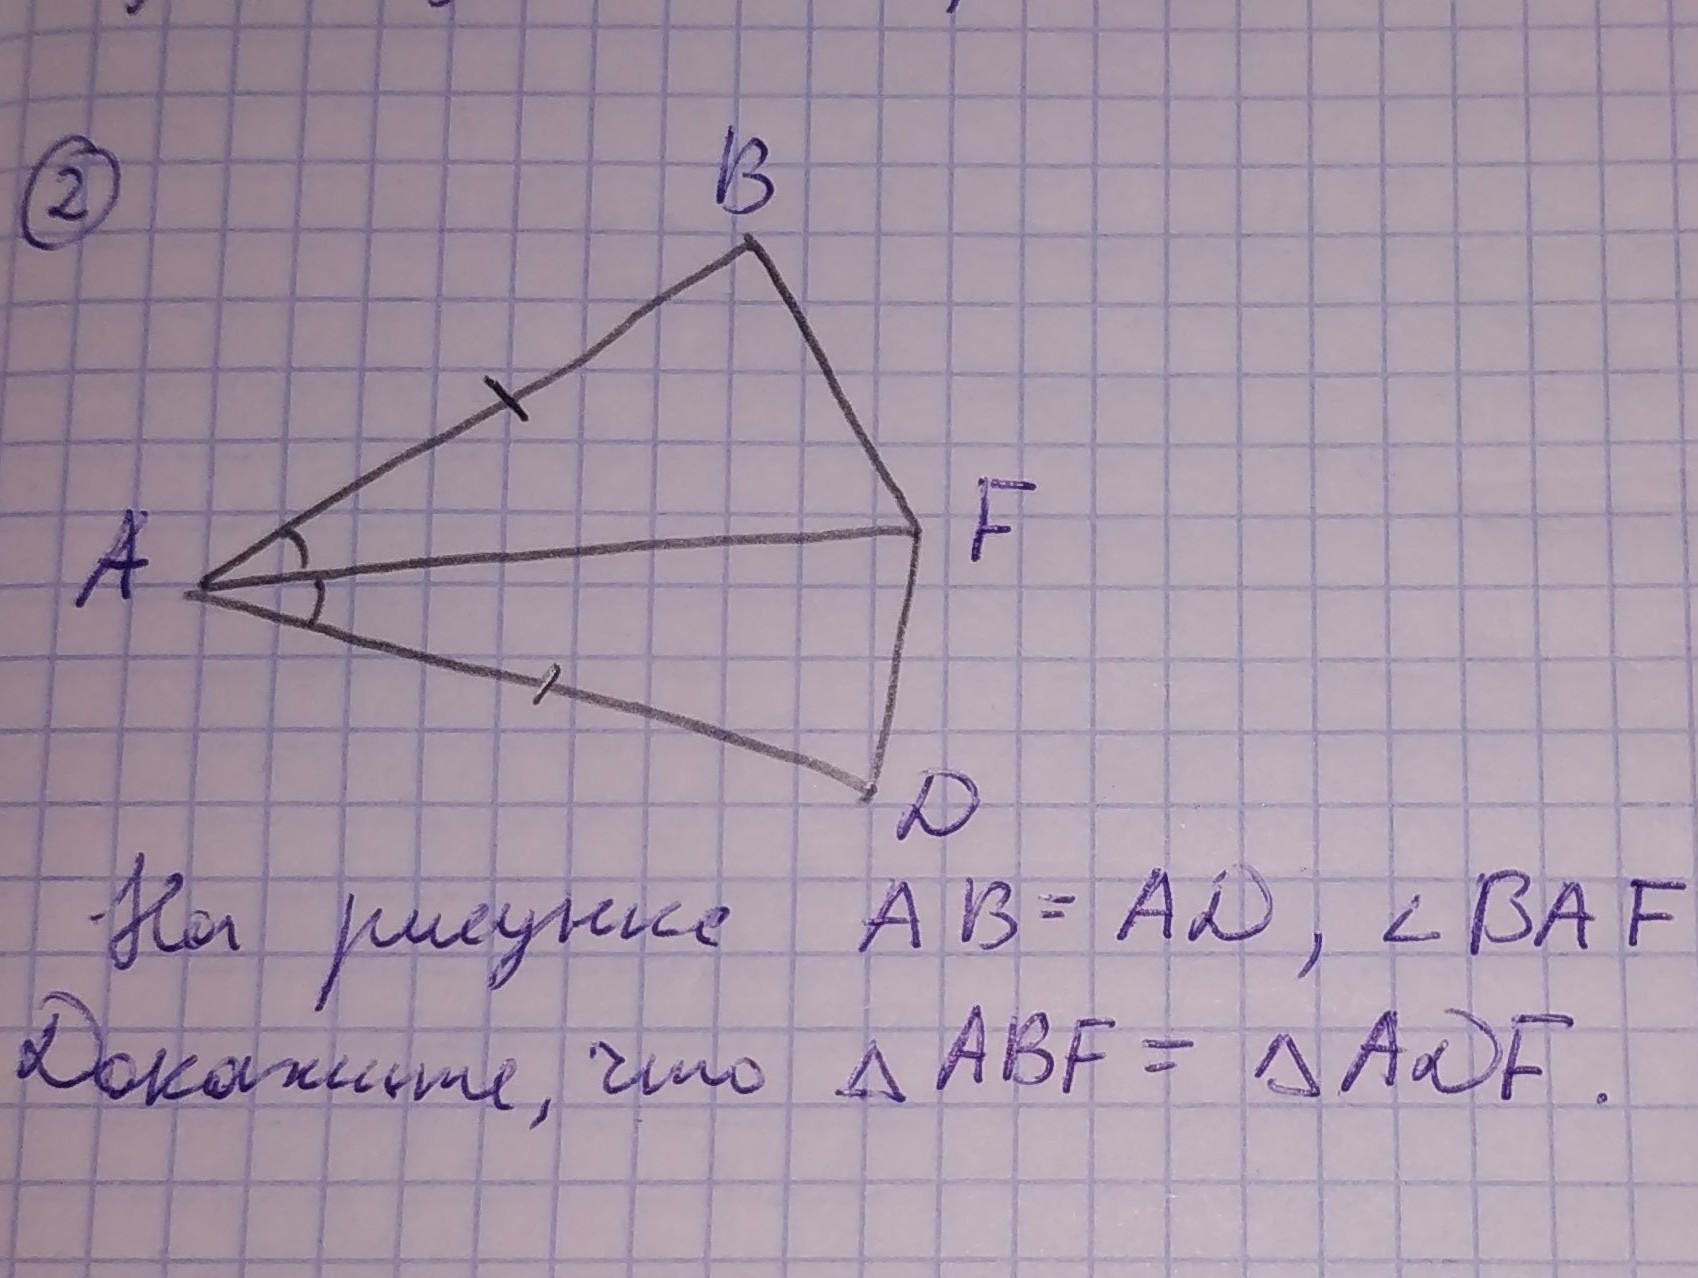 2
B
A
F
D
На рисунке AB = AD, ∠BAF
Докажите, что △ABF = △ADF.